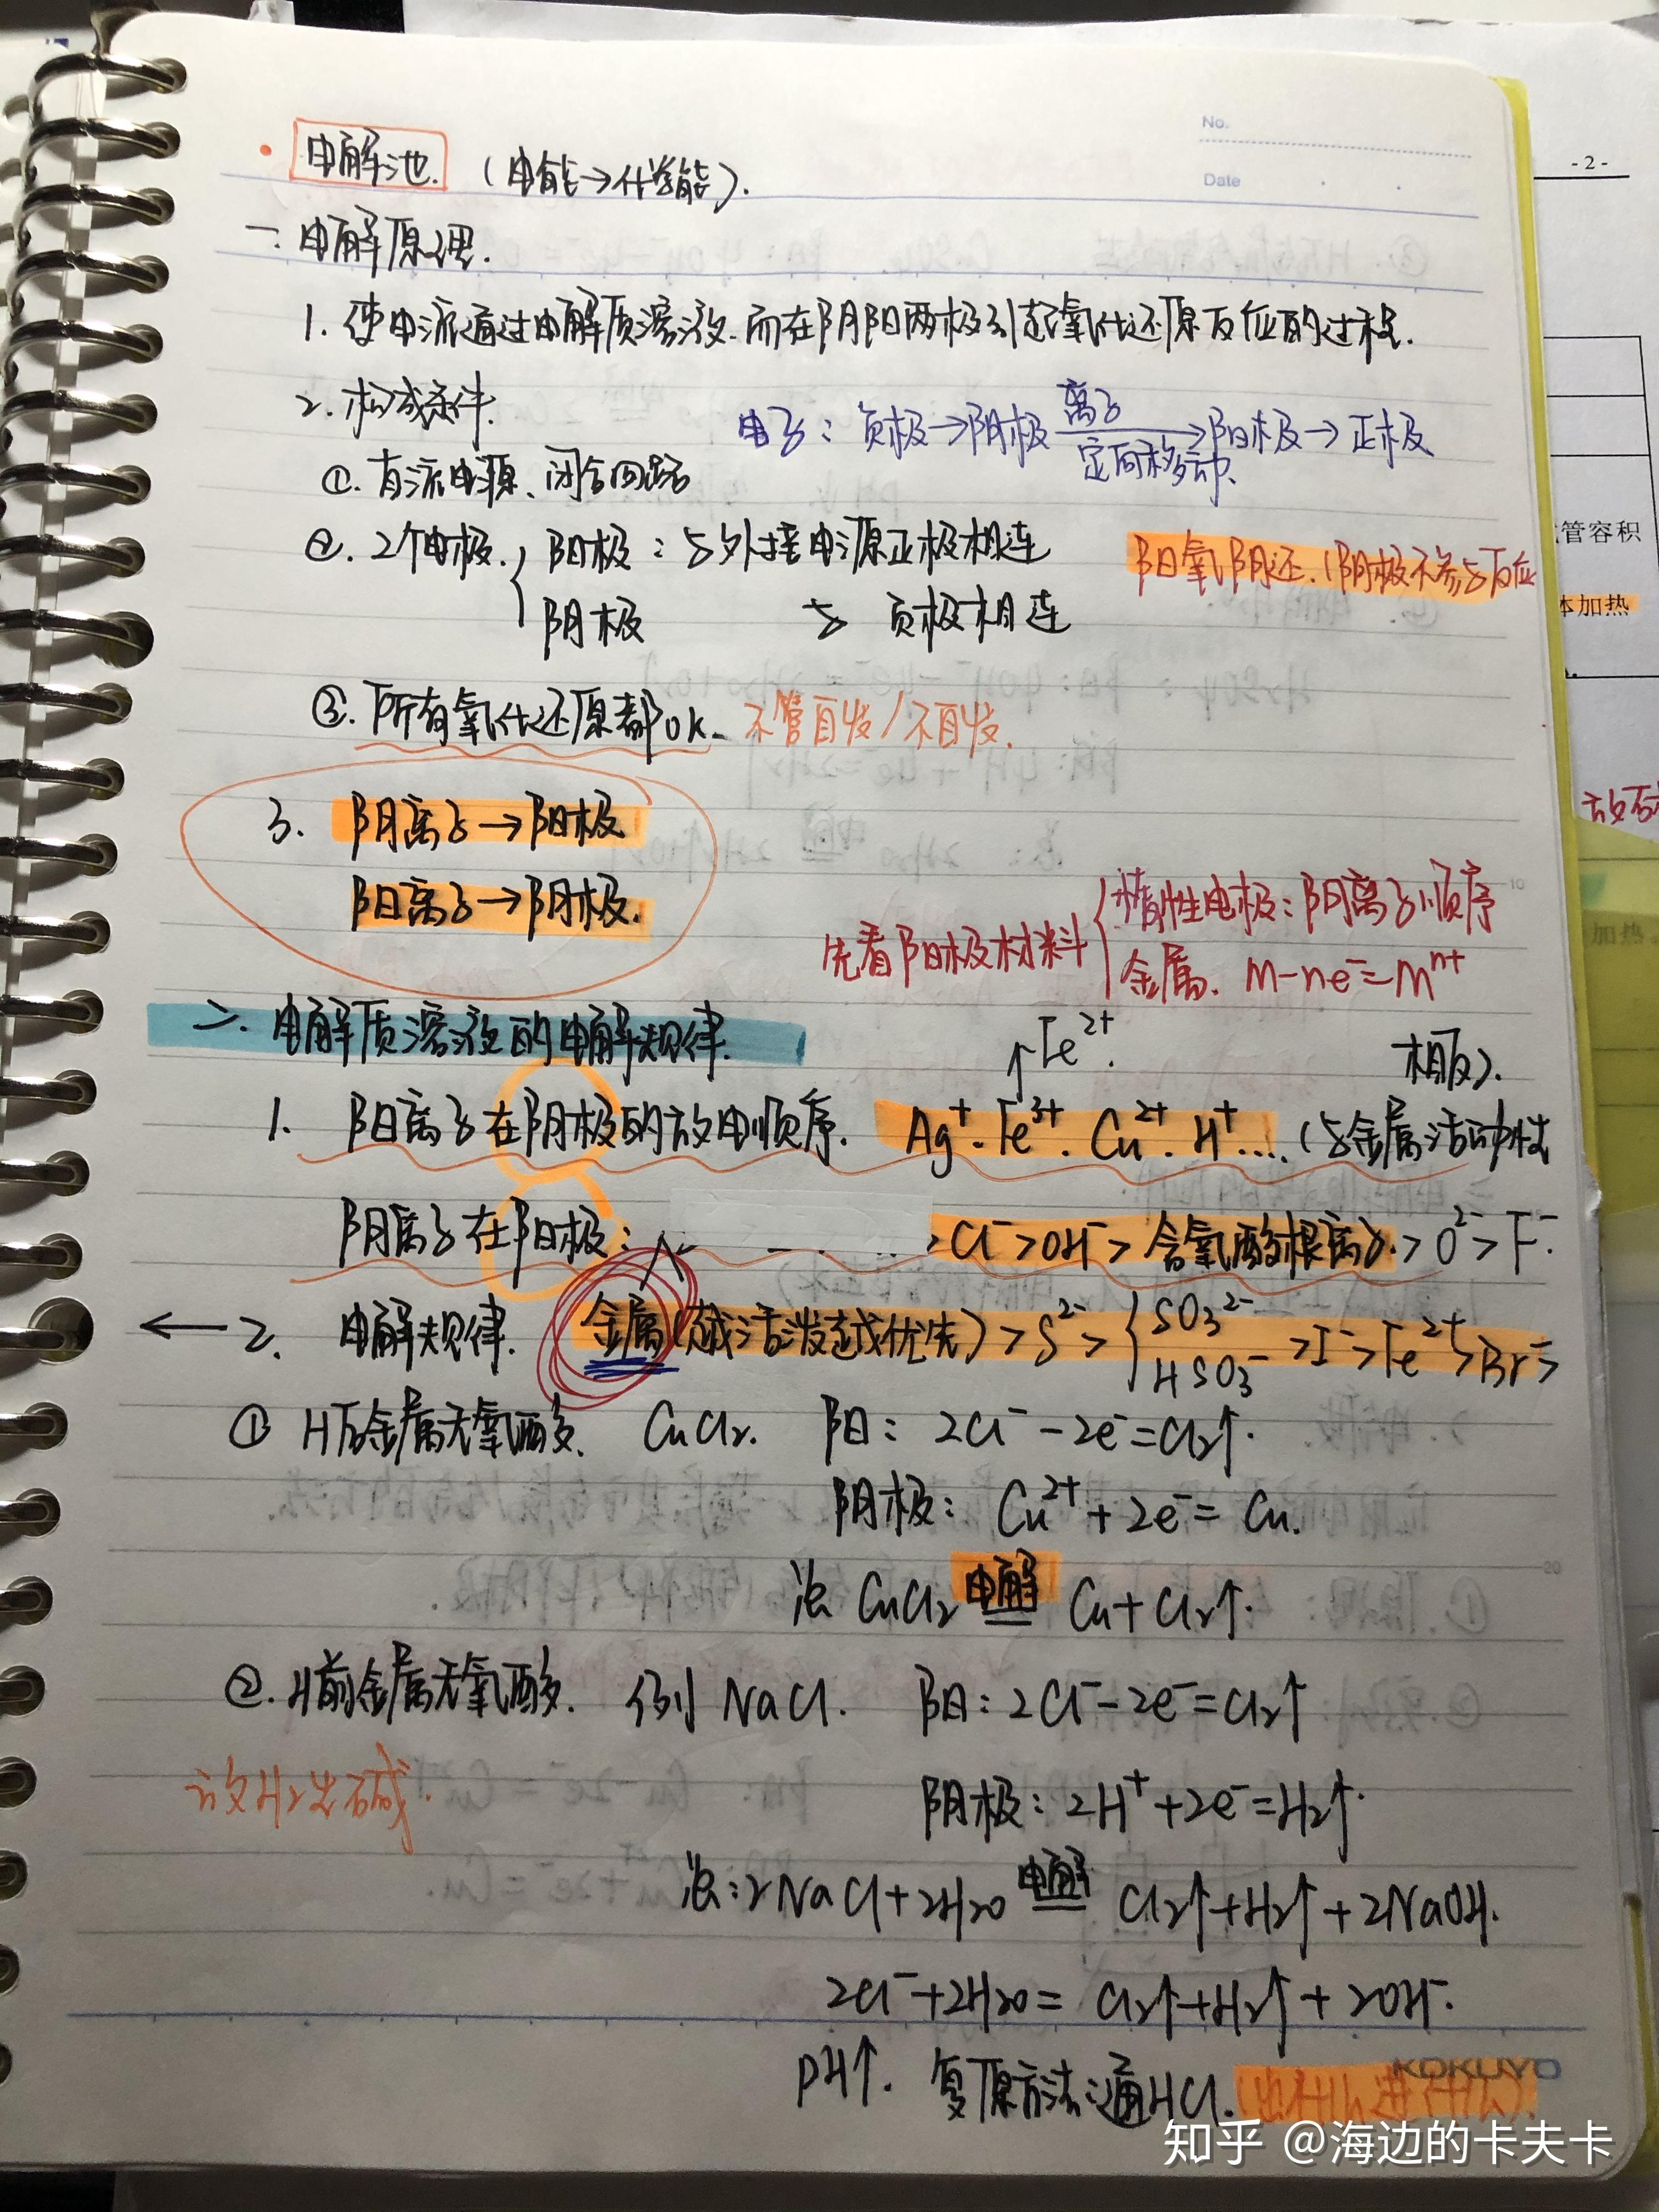 No.
Date
-2-
· 电解池. (电能→化学能).
一. 电解原理.
1. 使电流通过电解质溶液.而在阴阳两极引起氧化还原反应的过程.
2. 构成条件.
电子: 负极→阴极 离子 定向移动. →阳极→正极
①. 直流电源、闭合回路
②. 2个电极. { 阳极: 与外接电源正极相连
阴极 与 负极相连
阳氧阴还.(阴极不参与反应
管容积
本加热
③. 所有氧化还原都ok. 不管自发/不自发.
3. 阴离子→阳极
阳离子→阴极.
先看阳极材料 { 惰性电极:阴离子顺序
金属. M-ne⁻=Mⁿ⁺
二. 电解质溶液的电解规律.
↑Fe²⁺.
相反).
1. 阳离子在阴极的放电顺序. Ag⁺.Fe³⁺.Cu²⁺.H⁺.... (与金属活动性
阴离子在阳极: > Cl⁻>OH⁻> 含氧酸根离子.> O²⁻> F⁻.
← 2. 电解规律. 金属(越活泼越优先)> S²⁻> { SO₃²⁻ HSO₃⁻ >I⁻>Fe²⁺>Br⁻>
① H后金属无氧酸. CuCl₂. 阳: 2Cl⁻-2e⁻=Cl₂↑.
阴极: Cu²⁺+2e⁻= Cu.
总 CuCl₂ 电解 = Cu+Cl₂↑.
②. H前金属无氧酸. 例 NaCl. 阳: 2Cl⁻-2e⁻=Cl₂↑
放H₂生碱.
阴极: 2H⁺+2e⁻=H₂↑.
总:2NaCl+2H₂O 电解 = Cl₂↑+H₂↑+2NaOH.
2Cl⁻+2H₂O= Cl₂↑+H₂↑+2OH⁻.
PH↑. 复原方法:通HCl.(出什么进什么).
KOKUYO
知乎 @海边的卡夫卡